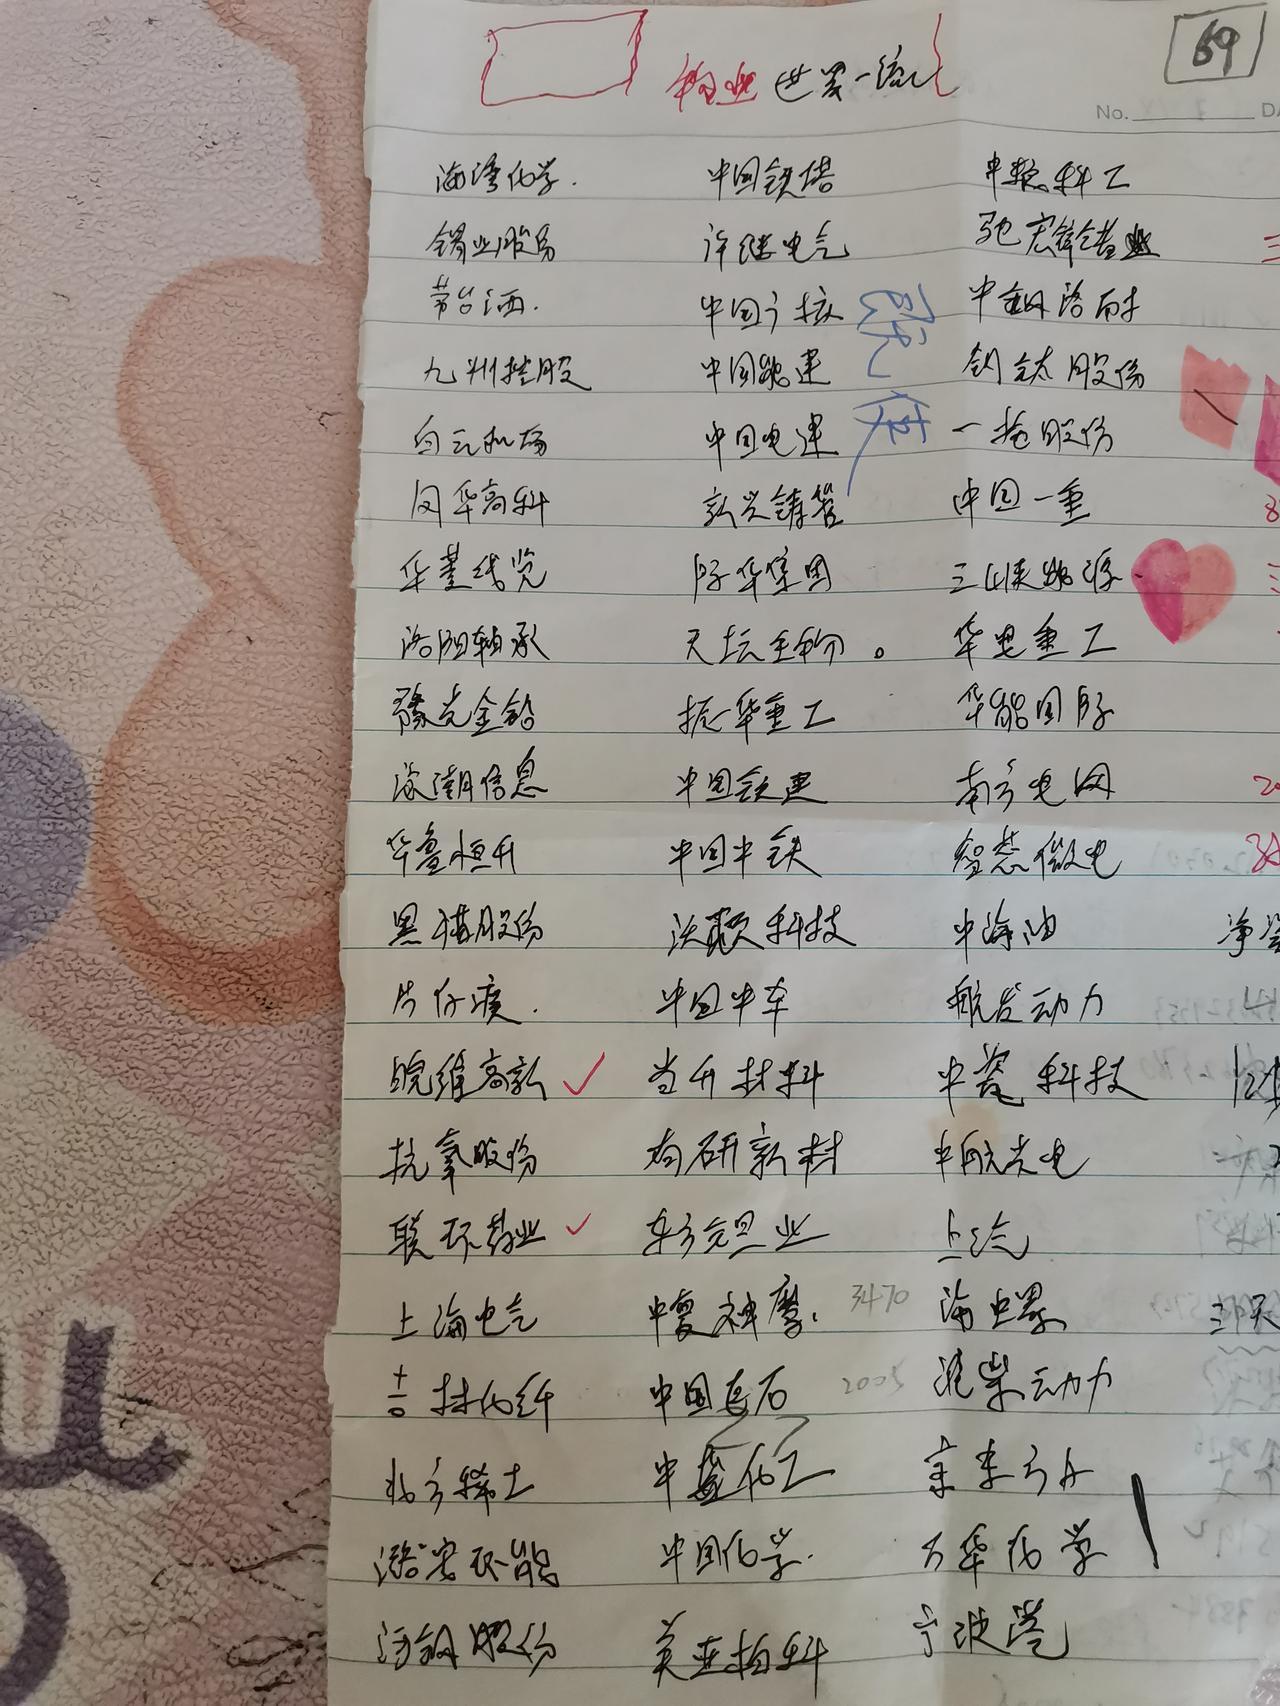 69
构业 世界一流
No. DA
海湾化学. 中国铁塔 中粮科工
锡业股份 许继电气 驰宏锌锗业
茅台酒. 中国广核 中钢洛耐
九州控股 中国能建 钒钛股份
白云机场 中国电建 一拖股份
风华高科 新兴铸管 中国一重
华菱线览 际华集团 三峡能源
洛阳轴承 天坛生物。 华电重工
豫光金铅 振华重工 华能国际
浪潮信息 中国铁建 南方电网
华鲁恒升 中国中铁 智慧微电
黑猫股份 沃顿科技 中海油
片仔癀. 中国中车 航发动力
皖维高新 当升材料 中瓷科技
杭氧股份 有研新材 中航光电
联环药业 东方钽业 上汽
上海电气 中复神鹰. 3470 海世界
吉林化纤 中国巨石 2005 潍柴动力
北方稀土 中盐化工 京东方A
潞安环能 中国化学. 万华化学
河钢股份 美亚柏科 宁波港